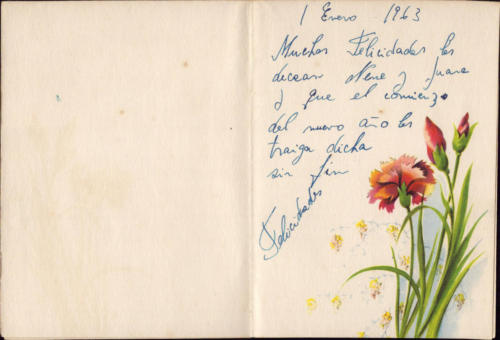 1 Enero 1963
Muchas Felicidades les
desean Nene y Juana
y que el comienzo
del nuevo año les
traiga dicha
sin fin
Felicidades